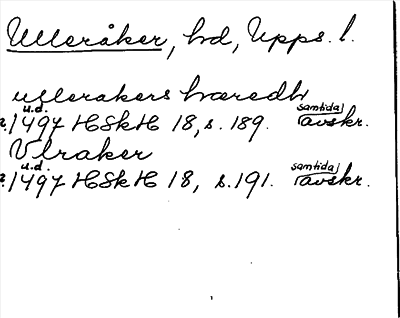 Ulleråker, hd, Upps. l.
ullerakers hæredh
u.d.
1497 HSkH 18, s. 189. samtida avskr.
Vlraker
u.d.
1497 HSkH 18, s. 191. samtida avskr.